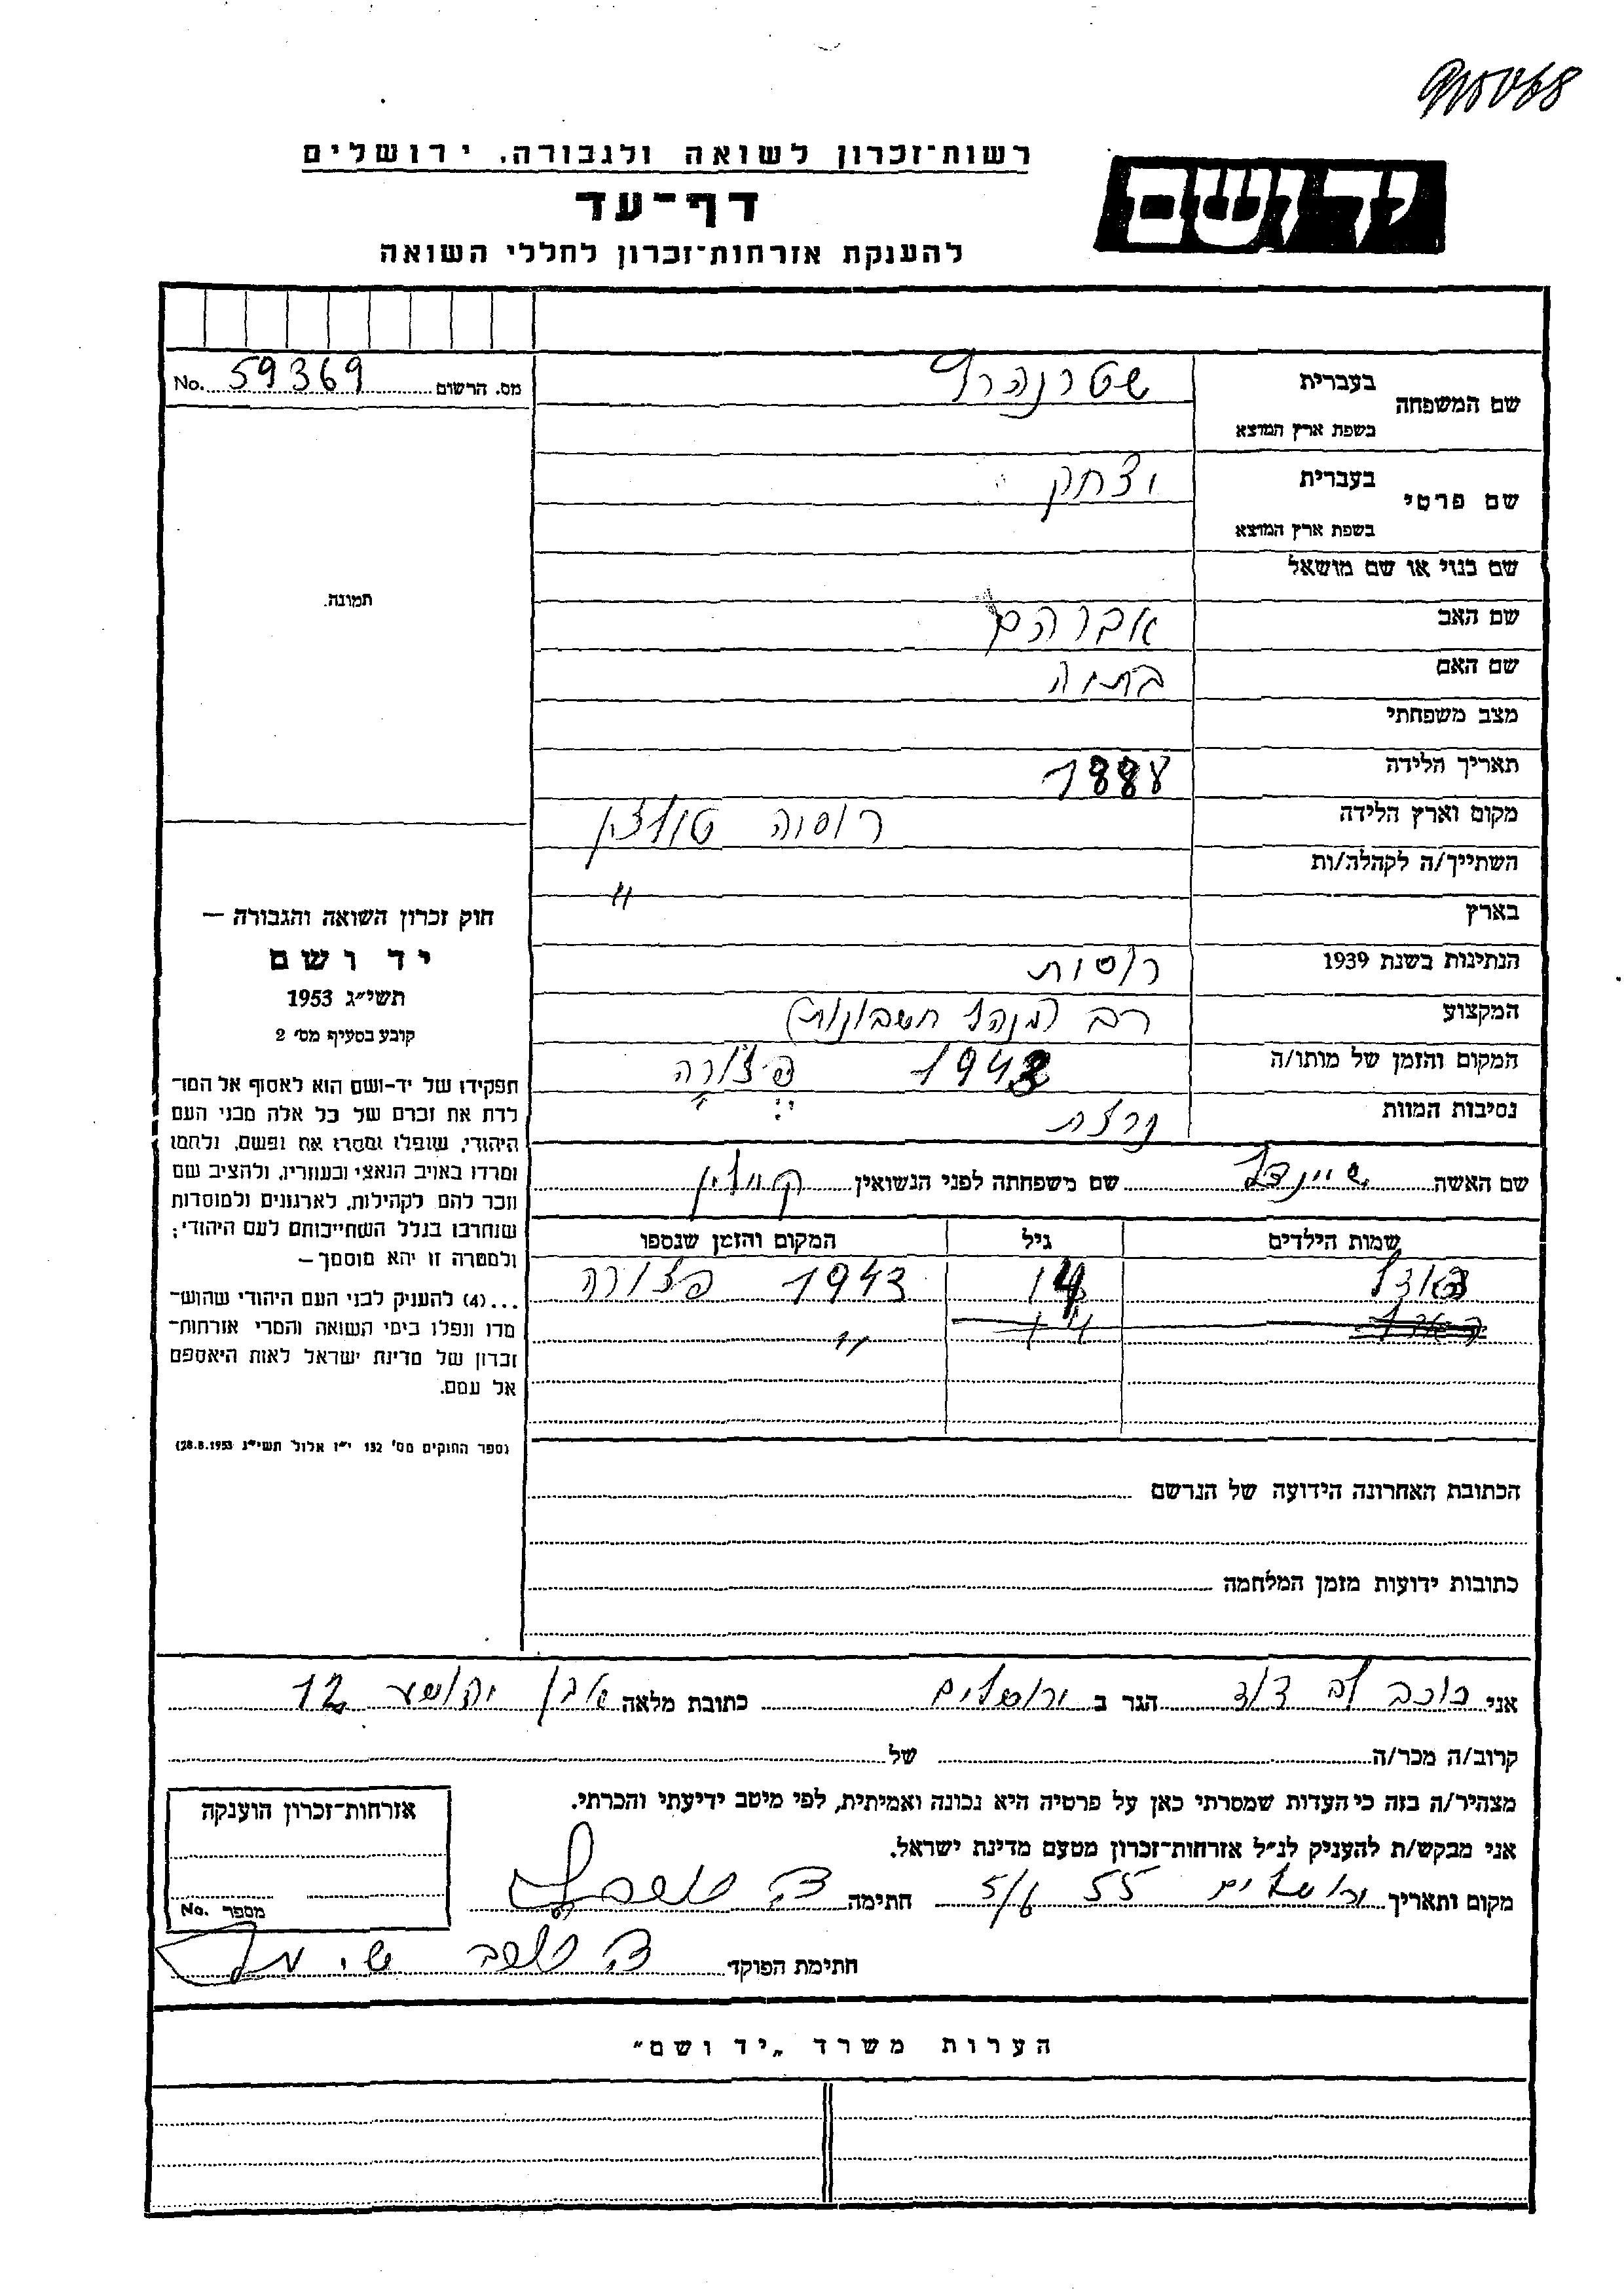 רשות־זכרון לשואה ולגבורה, ירושלים
יד ושם
דף־עד
להענקת אזרחות־זכרון לחללי השואה
מס. הרשום 59369 No.
שם המשפחה
בעברית
בשפת ארץ המוצא
שם פרטי
בעברית יצחק
בשפת ארץ המוצא
שם כנוי או שם מושאל
שם האב אברהם
שם האם בתיה
מצב משפחתי
תאריך הלידה 1888
מקום וארץ הלידה רוסיה
השתייך/ה לקהלה/ות
בארץ "
הנתינות בשנת 1939 רוסית
המקצוע רב (מנהל חשבונות)
המקום והזמן של מותו/ה 1943
נסיבות המוות
שם האשה שיינדל שם משפחתה לפני הנשואין
שמות הילדים גיל המקום והזמן שנספו
14 1943
"
הכתובת האחרונה הידועה של הנרשם
כתובות ידועות מזמן המלחמה
תמונה.
חוק זכרון השואה והגבורה —
יד ושם
תשי״ג 1953
קובע בסעיף מס׳ 2
תפקידו של יד-ושם הוא לאסוף אל המו־
לדת את זכרם של כל אלה מבני העם
היהודי, שנפלו ומסרו את נפשם, נלחמו
ומרדו באויב הנאצי ובעוזריו, ולהציב שם
וזכר להם לקהילות, לארגונים ולמוסדות
שנחרבו בגלל השתייכותם לעם היהודי;
ולמטרה זו יהא מוסמך —
...(4) להעניק לבני העם היהודי שהוש־
מדו ונפלו בימי השואה והמרי אזרחות־
זכרון של מדינת ישראל לאות היאספם
אל עמם.
(ספר החוקים מס׳ 132 י״ז אלול תשי״ג 28.8.1953)
אני כוכב לב דוד הגר ב ירושלים כתובת מלאה אבן יהושע 12
קרוב/ה מכר/ה של
מצהיר/ה בזה כי העדות שמסרתי כאן על פרטיה היא נכונה ואמיתית, לפי מיטב ידיעתי והכרתי.
אני מבקש/ת להעניק לנ״ל אזרחות־זכרון מטעם מדינת ישראל.
מקום ותאריך ירושלים 5/6 55 חתימה
חתימת הפוקד
אזרחות־זכרון הוענקה
מספר No.
הערות משרד „יד ושם״